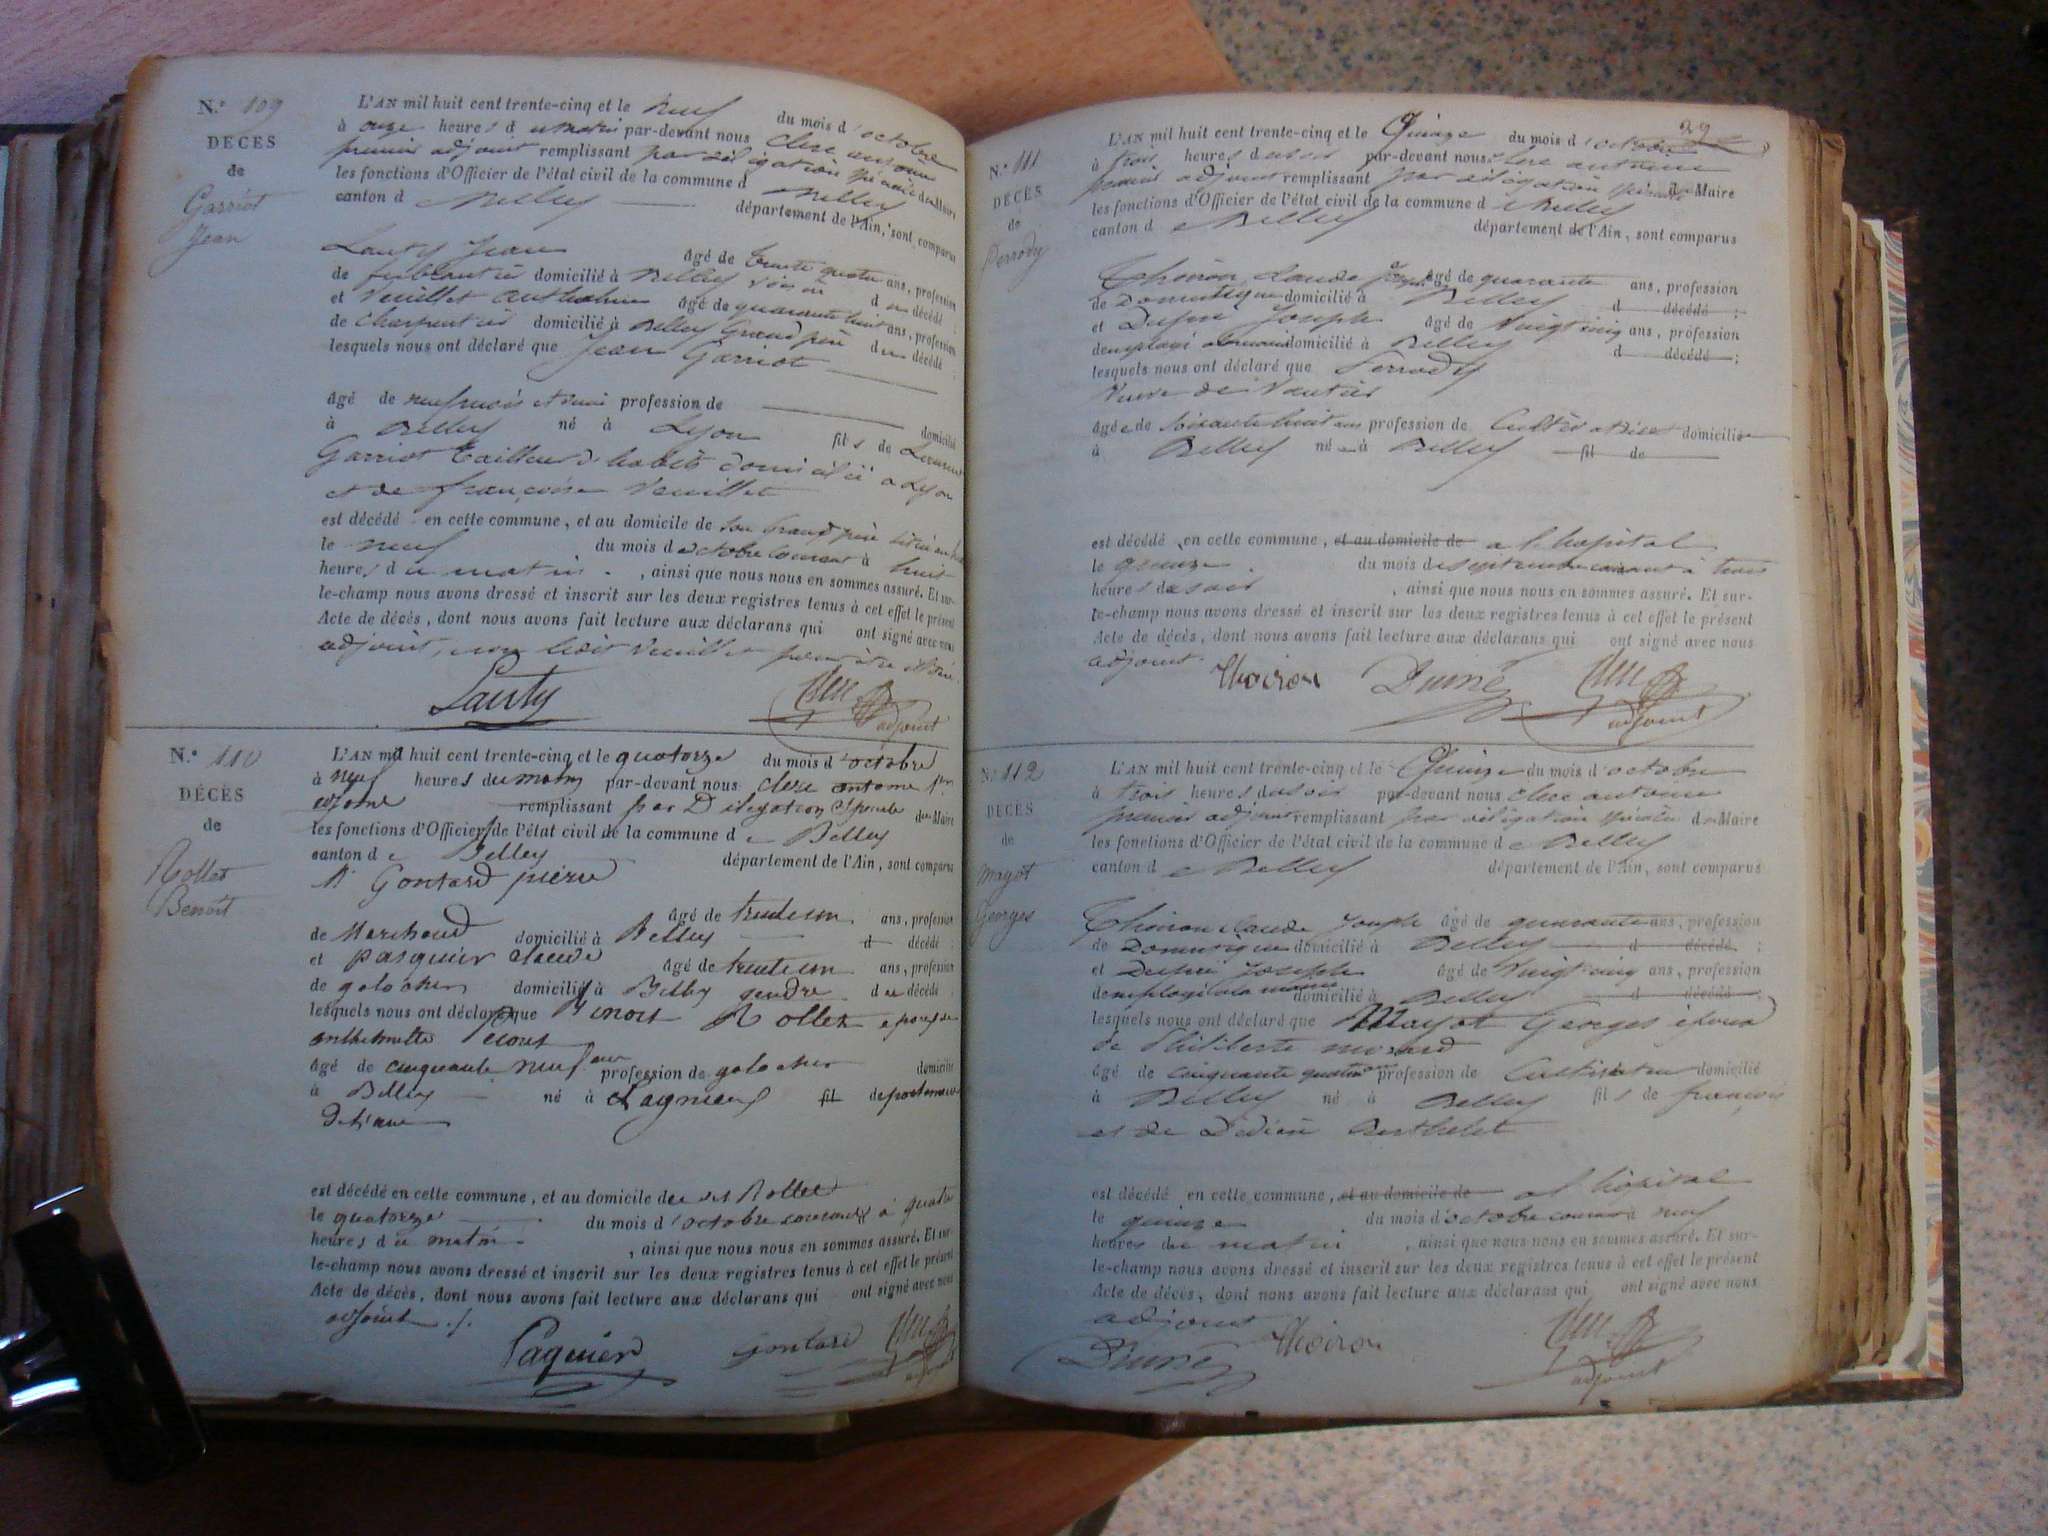 N.º 109
DÉCÈS
de
Garriot
Jean
L'AN mil huit cent trente-cinq et le neuf du mois d'octobre
à onze heures du matin par-devant nous Clerc antoine
premier adjoint remplissant par délégation spéciale du Maire
les fonctions d'Officier de l'état civil de la commune de Belley
canton de Belley département de l'Ain, sont comparus
Lauty Jean âgé de trente quatre ans, profession
de ferblantier domicilié à Belley voisin du décédé ;
et Veuillet anthelme âgé de quarante huit ans, profession
de charpentier domicilié à Belley Grand père du décédé ;
lesquels nous ont déclaré que Jean Garriot
âgé de neuf mois et demi profession de domicilié
à Belley né à Lyon fils de
Garriot tailleur d'habits domicilié à Lyon
et de françoise Veuillet
est décédé en cette commune, et au domicile de son Grand père
le neuf du mois d'octobre courant à huit
heures du matin , ainsi que nous nous en sommes assuré. Et sur-
le-champ nous avons dressé et inscrit sur les deux registres tenus à cet effet le présent
Acte de décès, dont nous avons fait lecture aux déclarans qui ont signé avec nous
adjoint, non ledit Veuillet pour être
Lauty
adjoint
N.º 110
DÉCÈS
de
Rollet
Benoit
L'AN mil huit cent trente-cinq et le quatorze du mois d'octobre
à neuf heures du matin par-devant nous Clerc antoine 1er
adjoint remplissant par Délégation Spéciale du Maire
les fonctions d'Officier de l'état civil de la commune de Belley
canton de Belley département de l'Ain, sont comparus
Mr Gontard pierre
âgé de trente un ans, profession
de Marchand domicilié à Belley d décédé ;
et pasquier Claude âgé de trente un ans, profession
de galocher domicilié à Belley gendre du décédé
lesquels nous ont déclaré que Benoit Rollet époux de
anthelmette
âgé de cinquante neuf ans profession de galocher domicilié
à Belley né à Lagnieu fil de
est décédé en cette commune, et au domicile du dit Rollet
le quatorze du mois d'octobre courant à quatre
heures du matin , ainsi que nous nous en sommes assuré. Et sur-
le-champ nous avons dressé et inscrit sur les deux registres tenus à cet effet le présent
Acte de décès, dont nous avons fait lecture aux déclarans qui ont signé avec nous
adjoint ./.
Paquier gontard
29
N.º 111
DÉCÈS
de
Perrody
L'AN mil huit cent trente-cinq et le Quinze du mois d'octobre
à trois heures du soir par-devant nous Clerc antoine
premier adjoint remplissant par délégation spéciale du Maire
les fonctions d'Officier de l'état civil de la commune de Belley
canton de Belley département de l'Ain, sont comparus
Thoiron Claude Joseph âgé de quarante ans, profession
de Domestique domicilié à Belley d décédé ;
et Duiné Joseph âgé de Vingt cinq ans, profession
d'employé à la mairie domicilié à Belley d décédé ;
lesquels nous ont déclaré que Perrody
Veuve de Vautier
âgée de soixante huit ans profession de Cultivatrice domiciliée
à Belley née à Belley fil de
est décédé en cette commune, et au domicile de à l'hôpital
le quinze du mois de septembre courant à trois
heures du soir , ainsi que nous nous en sommes assuré. Et sur-
le-champ nous avons dressé et inscrit sur les deux registres tenus à cet effet le présent
Acte de décès, dont nous avons fait lecture aux déclarans qui ont signé avec nous
adjoint.
Thoiron Duiné
adjoint
N.º 112
DÉCÈS
de
Mayot
Georges
L'AN mil huit cent trente-cinq et le Quinze du mois d'octobre
à trois heures du soir par-devant nous Clerc antoine
premier adjoint remplissant par délégation spéciale du Maire
les fonctions d'Officier de l'état civil de la commune de Belley
canton de Belley département de l'Ain, sont comparus
Thoiron Claude Joseph âgé de quarante ans, profession
de Domestique domicilié à Belley d décédé ;
et Duiné Joseph âgé de Vingt cinq ans, profession
d'employé à la mairie domicilié à Belley d décédé ;
lesquels nous ont déclaré que Mayot Georges époux
de Philiberte
âgé de cinquante quatre ans profession de Cultivateur domicilié
à Belley né à Belley fils de françois
et de Berthelet
est décédé en cette commune, et au domicile de à l'hôpital
le quinze du mois d'octobre courant à neuf
heures du matin , ainsi que nous nous en sommes assuré. Et sur-
le-champ nous avons dressé et inscrit sur les deux registres tenus à cet effet le présent
Acte de décès, dont nous avons fait lecture aux déclarans qui ont signé avec nous
adjoint
Duiné Thoiron
adjoint